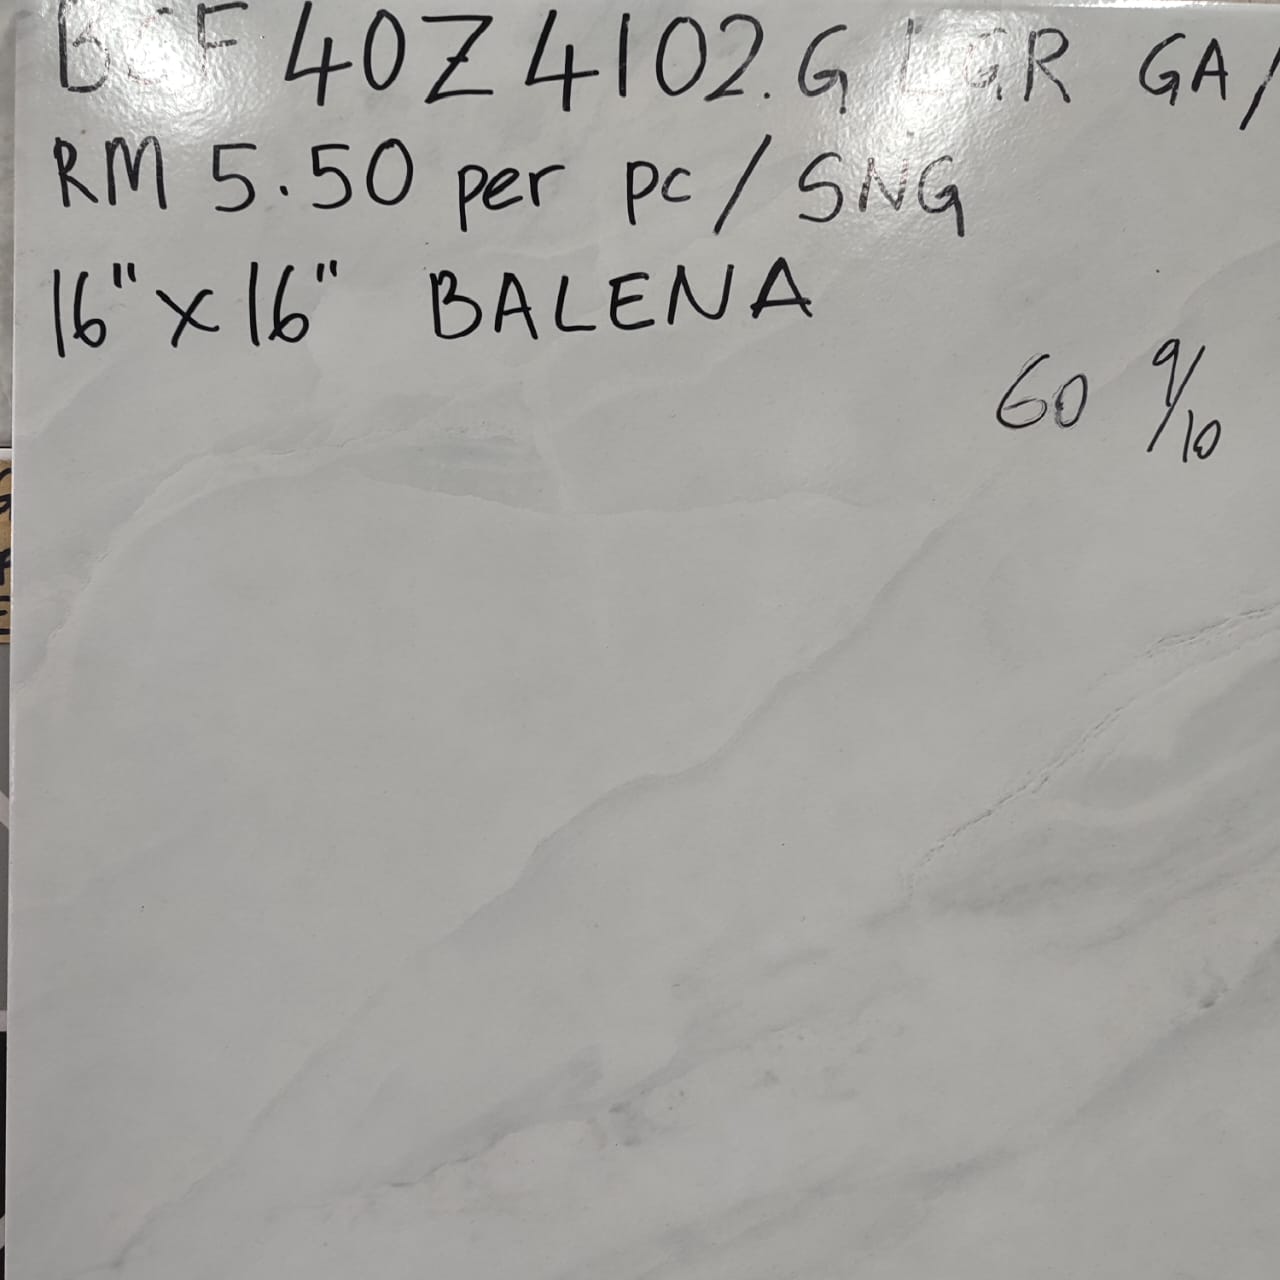 BCF 40Z4102.G LGR GA/
RM 5.50 per pc/ SNG
16"x16" BALENA
60 9/10